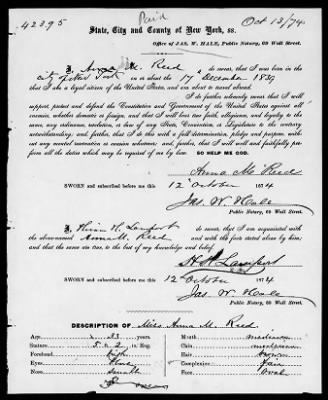 42395
Paid
Oct 13/74
State, City and County of New York, ss.
Office of JAS. W. HALE, Public Notary, 63 Wall Street.
I, Anna M. Reed do swear, that I was born in the
city of New York on or about the 17th December 1839
that I am a legal citizen of the United States, and am about to travel abroad.
I do further solemnly swear that I will
support, protect and defend the Constitution and Government of the United States against all
enemies, whether domestic or foreign, and that I will bear true faith, allegiance, and loyalty to the
same, any ordinance, resolution, or law of any State, Convention, or Legislature to the contrary
notwithstanding; and further, that I do this with a full determination, pledge and purpose, with-
out any mental reservation or evasion whatsoever; and, further, that I will well and faithfully per-
form all the duties which may be required of me by law. SO HELP ME GOD.
Anna M. Reed
SWORN and subscribed before me this
12 October 1874
Jas. W. Hale
Public Notary, 63 Wall Street.
I, Hiram H. Lamport do swear, that I am acquainted with
the above-named Anna M. Reed and with the facts stated above by him; and
that the same are true, to the best of my knowledge and belief.
H. H. Lamport
SWORN and subscribed before me this
12 October 1874
Jas. W. Hale
Public Notary, 63 Wall Street.
DESCRIPTION OF Miss Anna M. Reed
Age, years. Mouth, medium
Stature, 5. 2 in. Eng. Chin,
Forehead, high Hair, brown
Eyes, blue Complexion, Fair
Nose, small Face, Oval